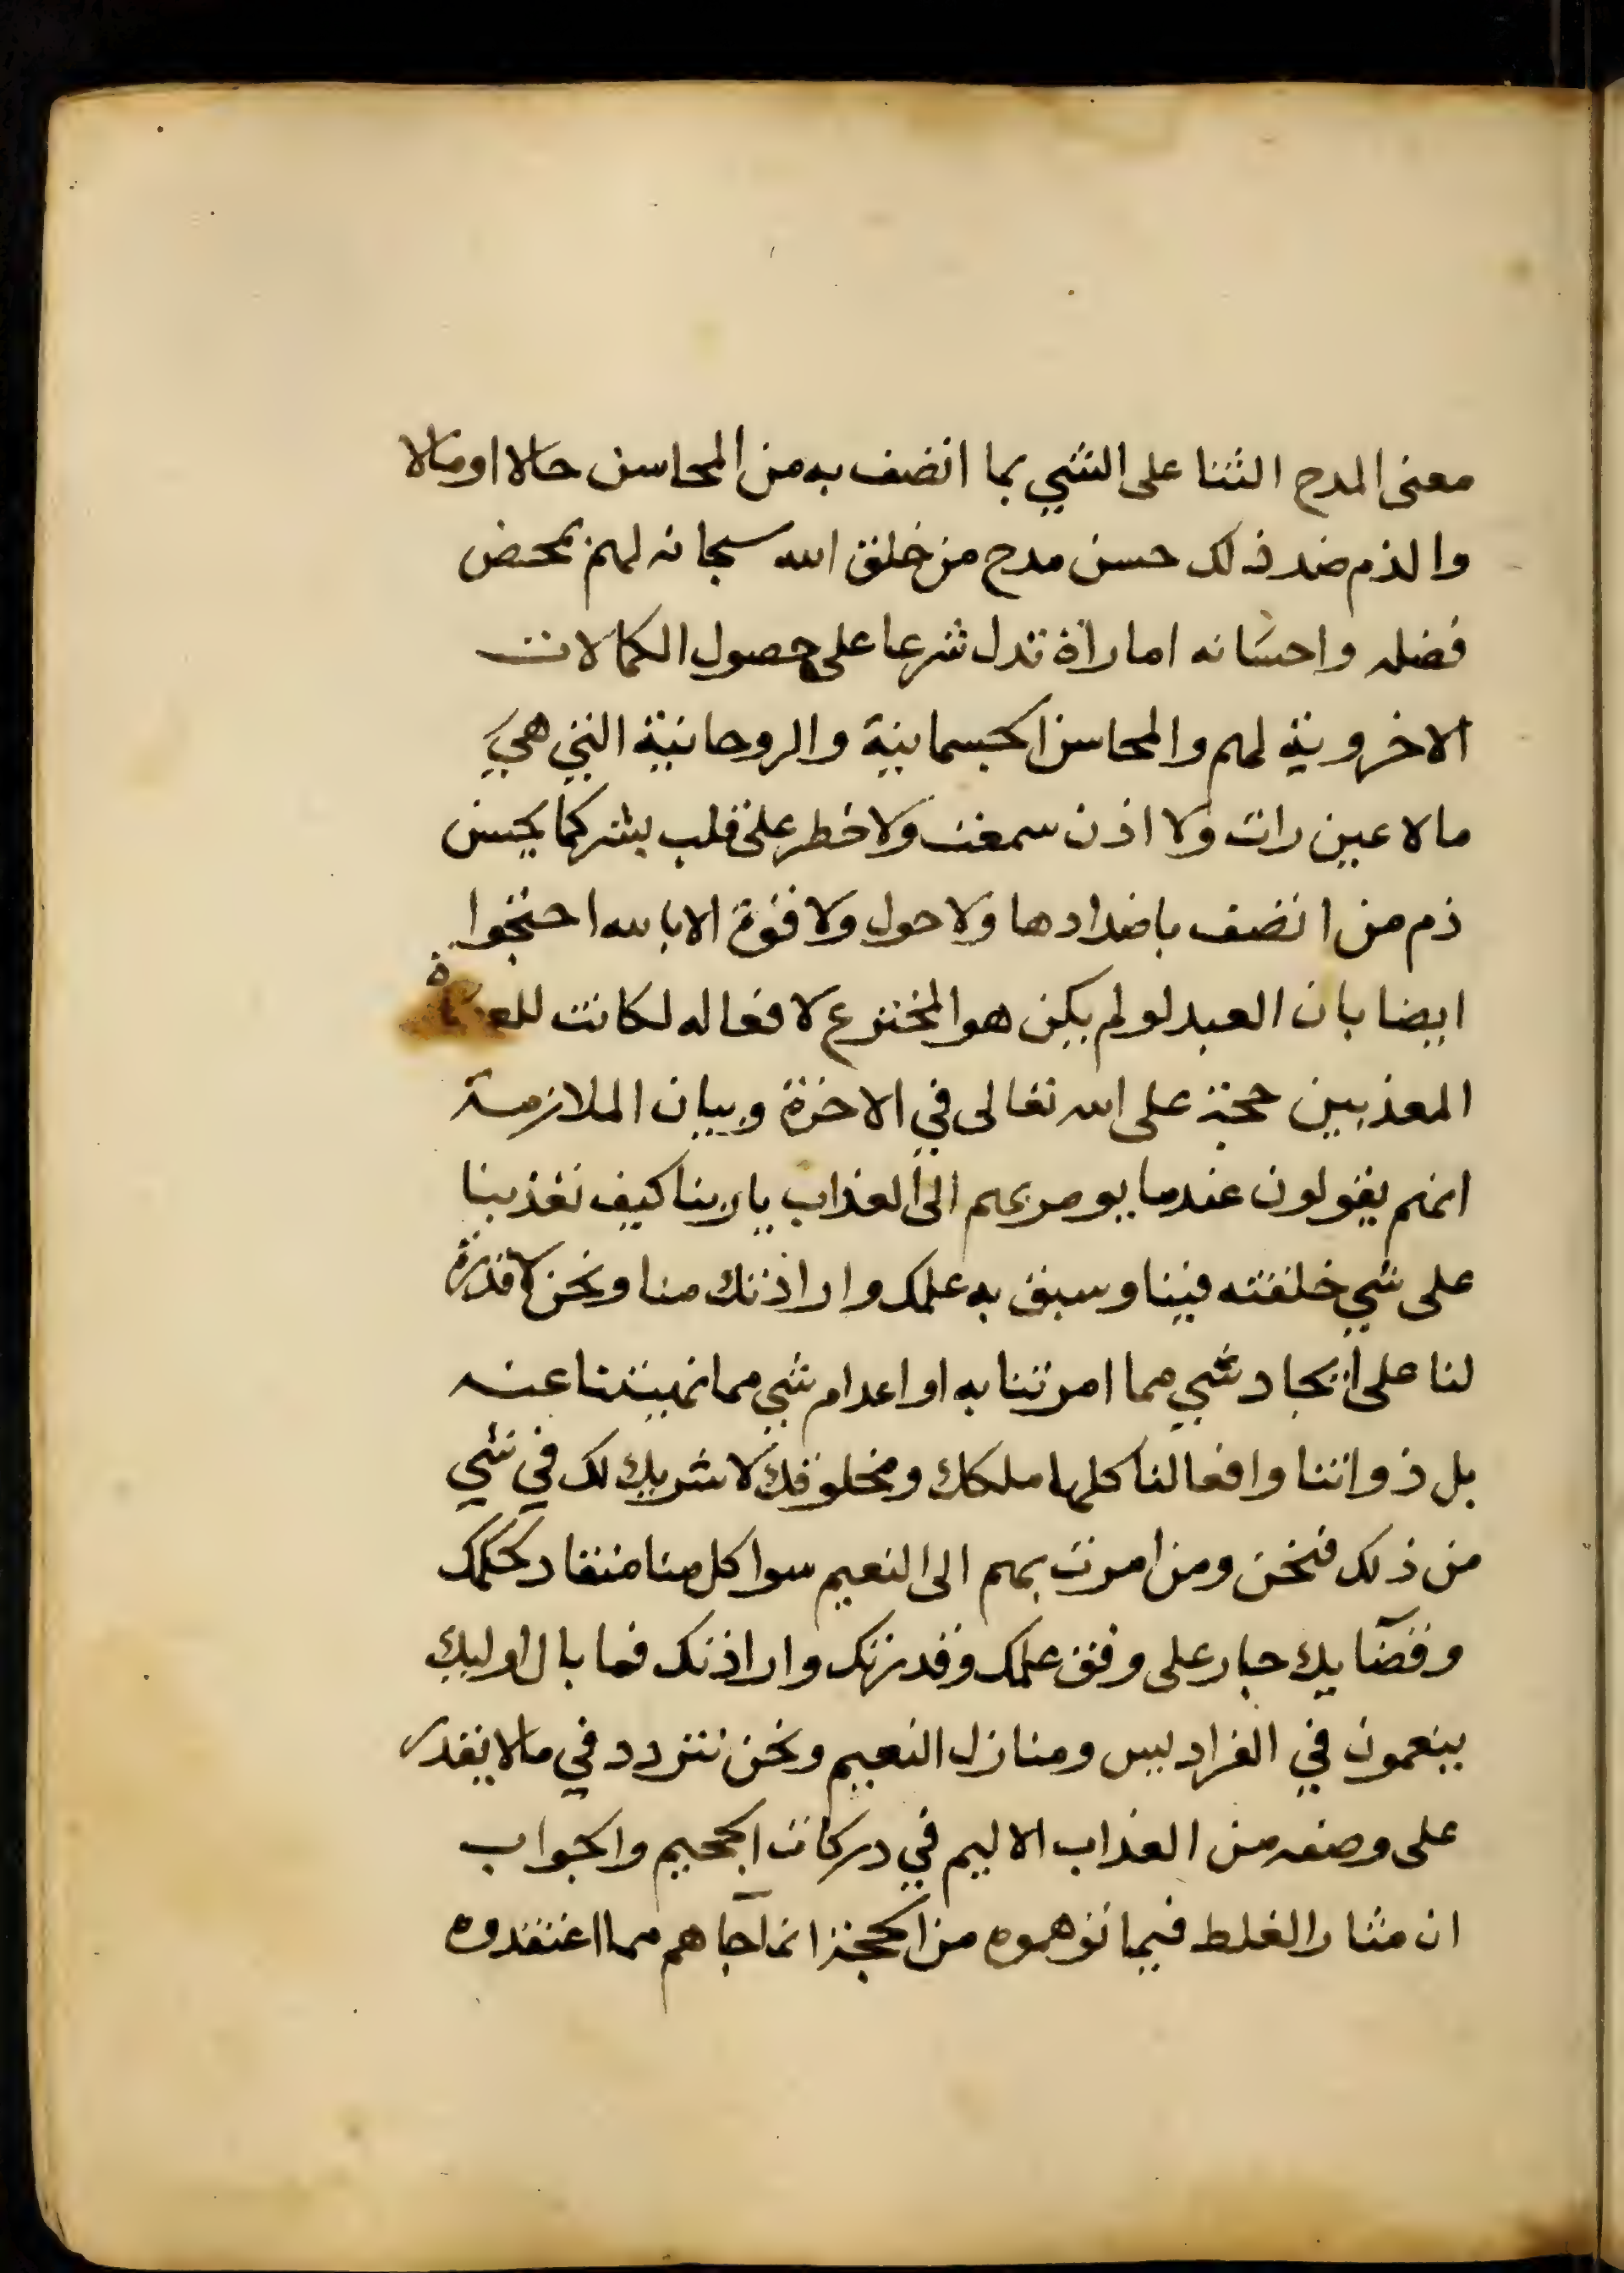 معنى المدح الثنا على الشي بما اتصف به من المحاسن حالا او مالا
والذم ضد ذلك حسن مدح من خلق الله سبحانه لهم بمحض
فضله واحسانه اماراة تدل شرعا على حصول الكمالات
الاخروية لهم والمحاسن الجسمانية والروحانية التي هي
مالا عين رات ولا اذن سمعت ولا خطر على قلب بشر كما يحسن
ذم من اتصف باضدادها ولا حول ولا قوة الا بالله احتجوا
ايضا بان العبد لو لم يكن هو المخترع لافعاله لكانت
المعذبين حجة على الله تعالى في الاخرة وبيان الملازمة
انهم يقولون عندما يومر بهم الى العذاب يا ربنا كيف تعذبنا
على شي خلقته فينا وسبق به علمك وارادتك منا ونحن لا قدرة
لنا على ايجاد شي مما امرتنا به او اعدام شي مما نهيتنا عنه
بل ذواتنا وافعالنا كلها ملكك ومخلوقك لا شريك لك في شي
من ذلك فنحن ومن امرت بهم الى النعيم سوا كل منا منقاد لحكمك
وقضايك جار على وفق علمك وقدرتك وارادتك فما بال اوليك
ينعمون في الفراديس ومنازل النعيم ونحن نتردد في مالا يقدر
على وصفه من العذاب الاليم في دركات الجحيم والجواب
ان مثار الغلط فيما توهموه من الحجة انما جاهم مما اعتقدوه